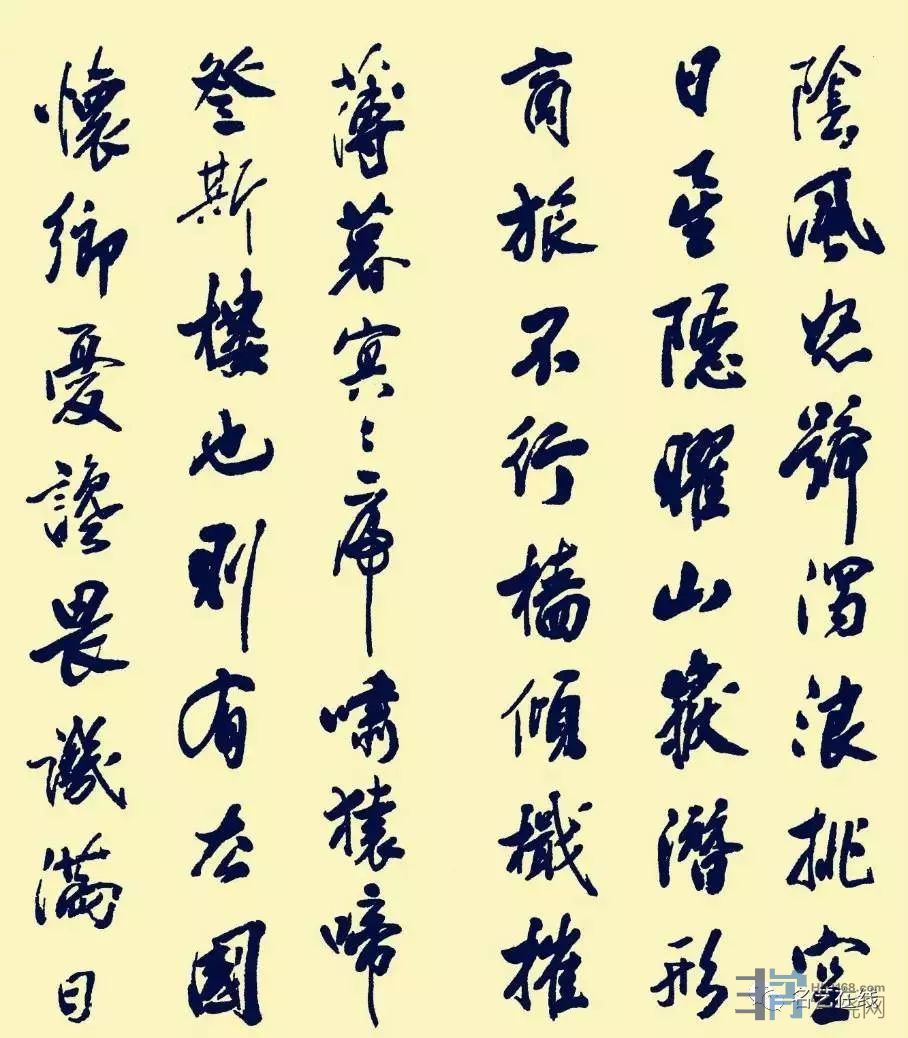 陰風怒號濁浪排空
日星隱曜山嶽潛形
商旅不行檣傾檝摧
薄暮冥〻虎嘯猿啼
登斯樓也則有去國
懷鄉憂讒畏譏滿目
名艺在线